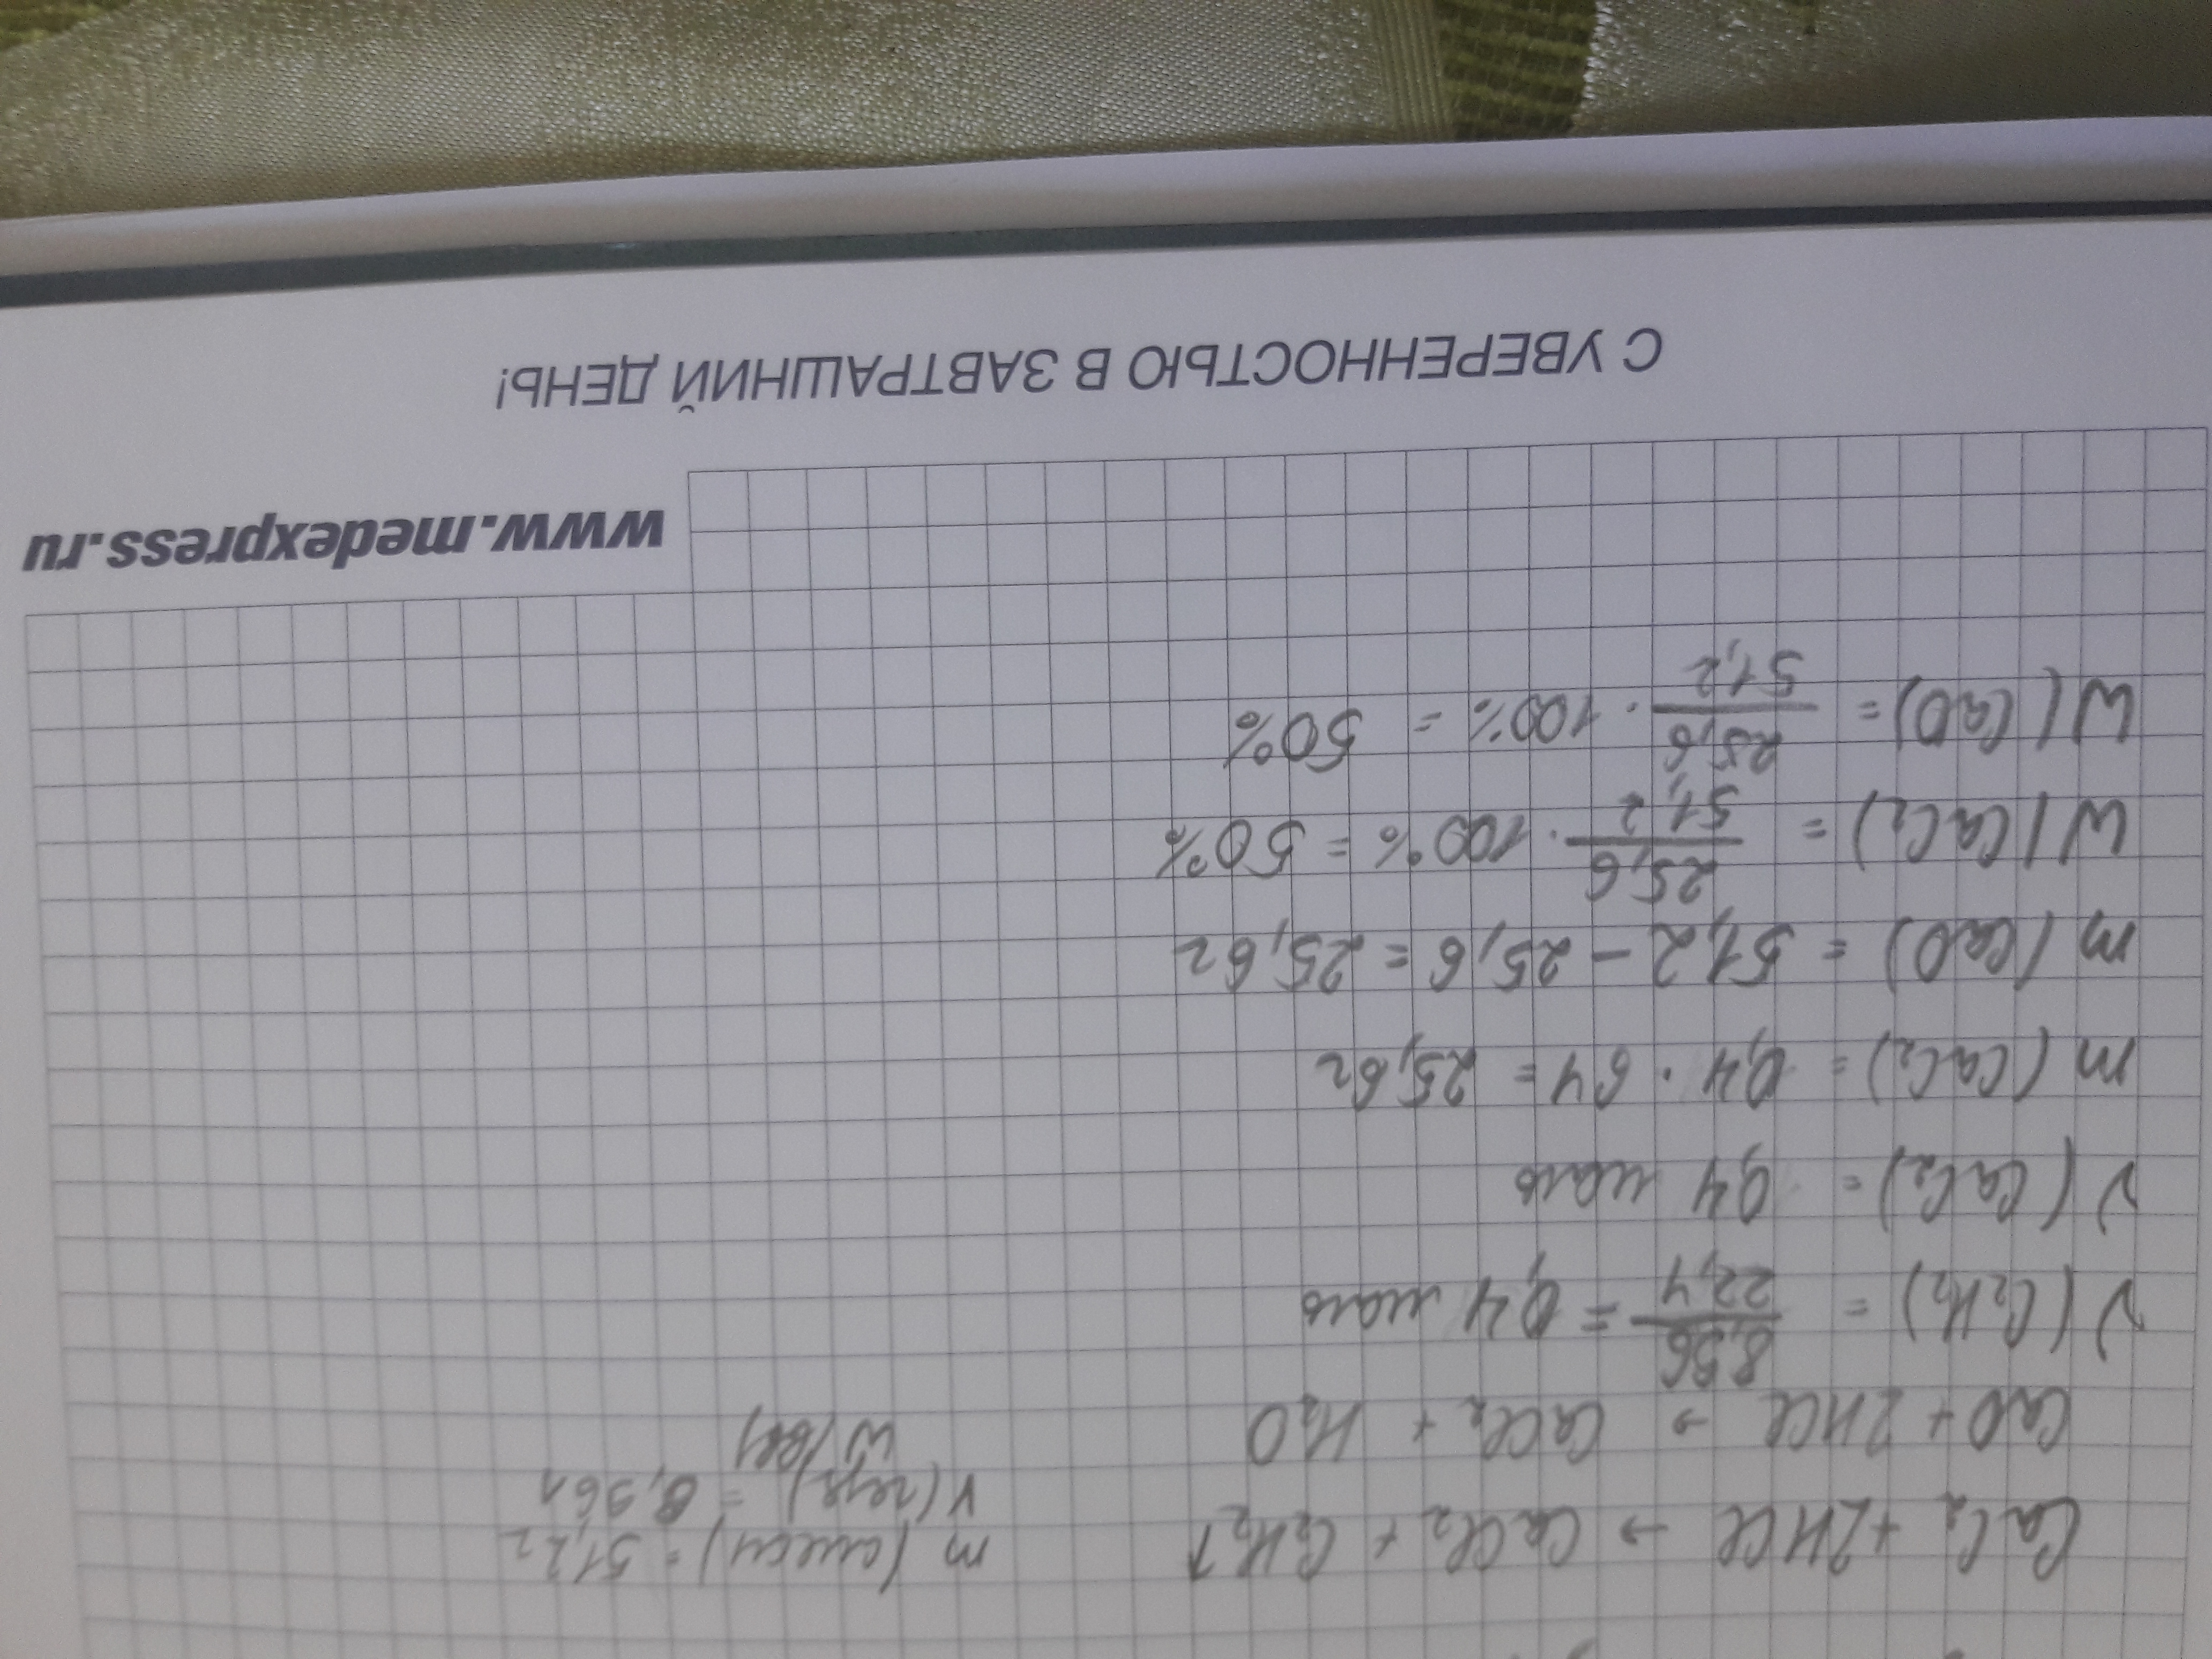 CaC₂ + 2HCl → CaCl₂ + C₂H₂↑
m(смеси) = 51,2 г
V(газа) = 8,96 л
CaO + 2HCl → CaCl₂ + H₂O
ν(C₂H₂) = 8,96/22,4 = 0,4 моль
ν(CaC₂) = 0,4 моль
m(CaC₂) = 0,4 · 64 = 25,6 г
m(CaO) = 51,2 - 25,6 = 25,6 г
W(CaC₂) = 25,6/51,2 · 100% = 50%
W(CaO) = 25,6/51,2 · 100% = 50%
www.medexpress.ru
С УВЕРЕННОСТЬЮ В ЗАВТРАШНИЙ ДЕНЬ!